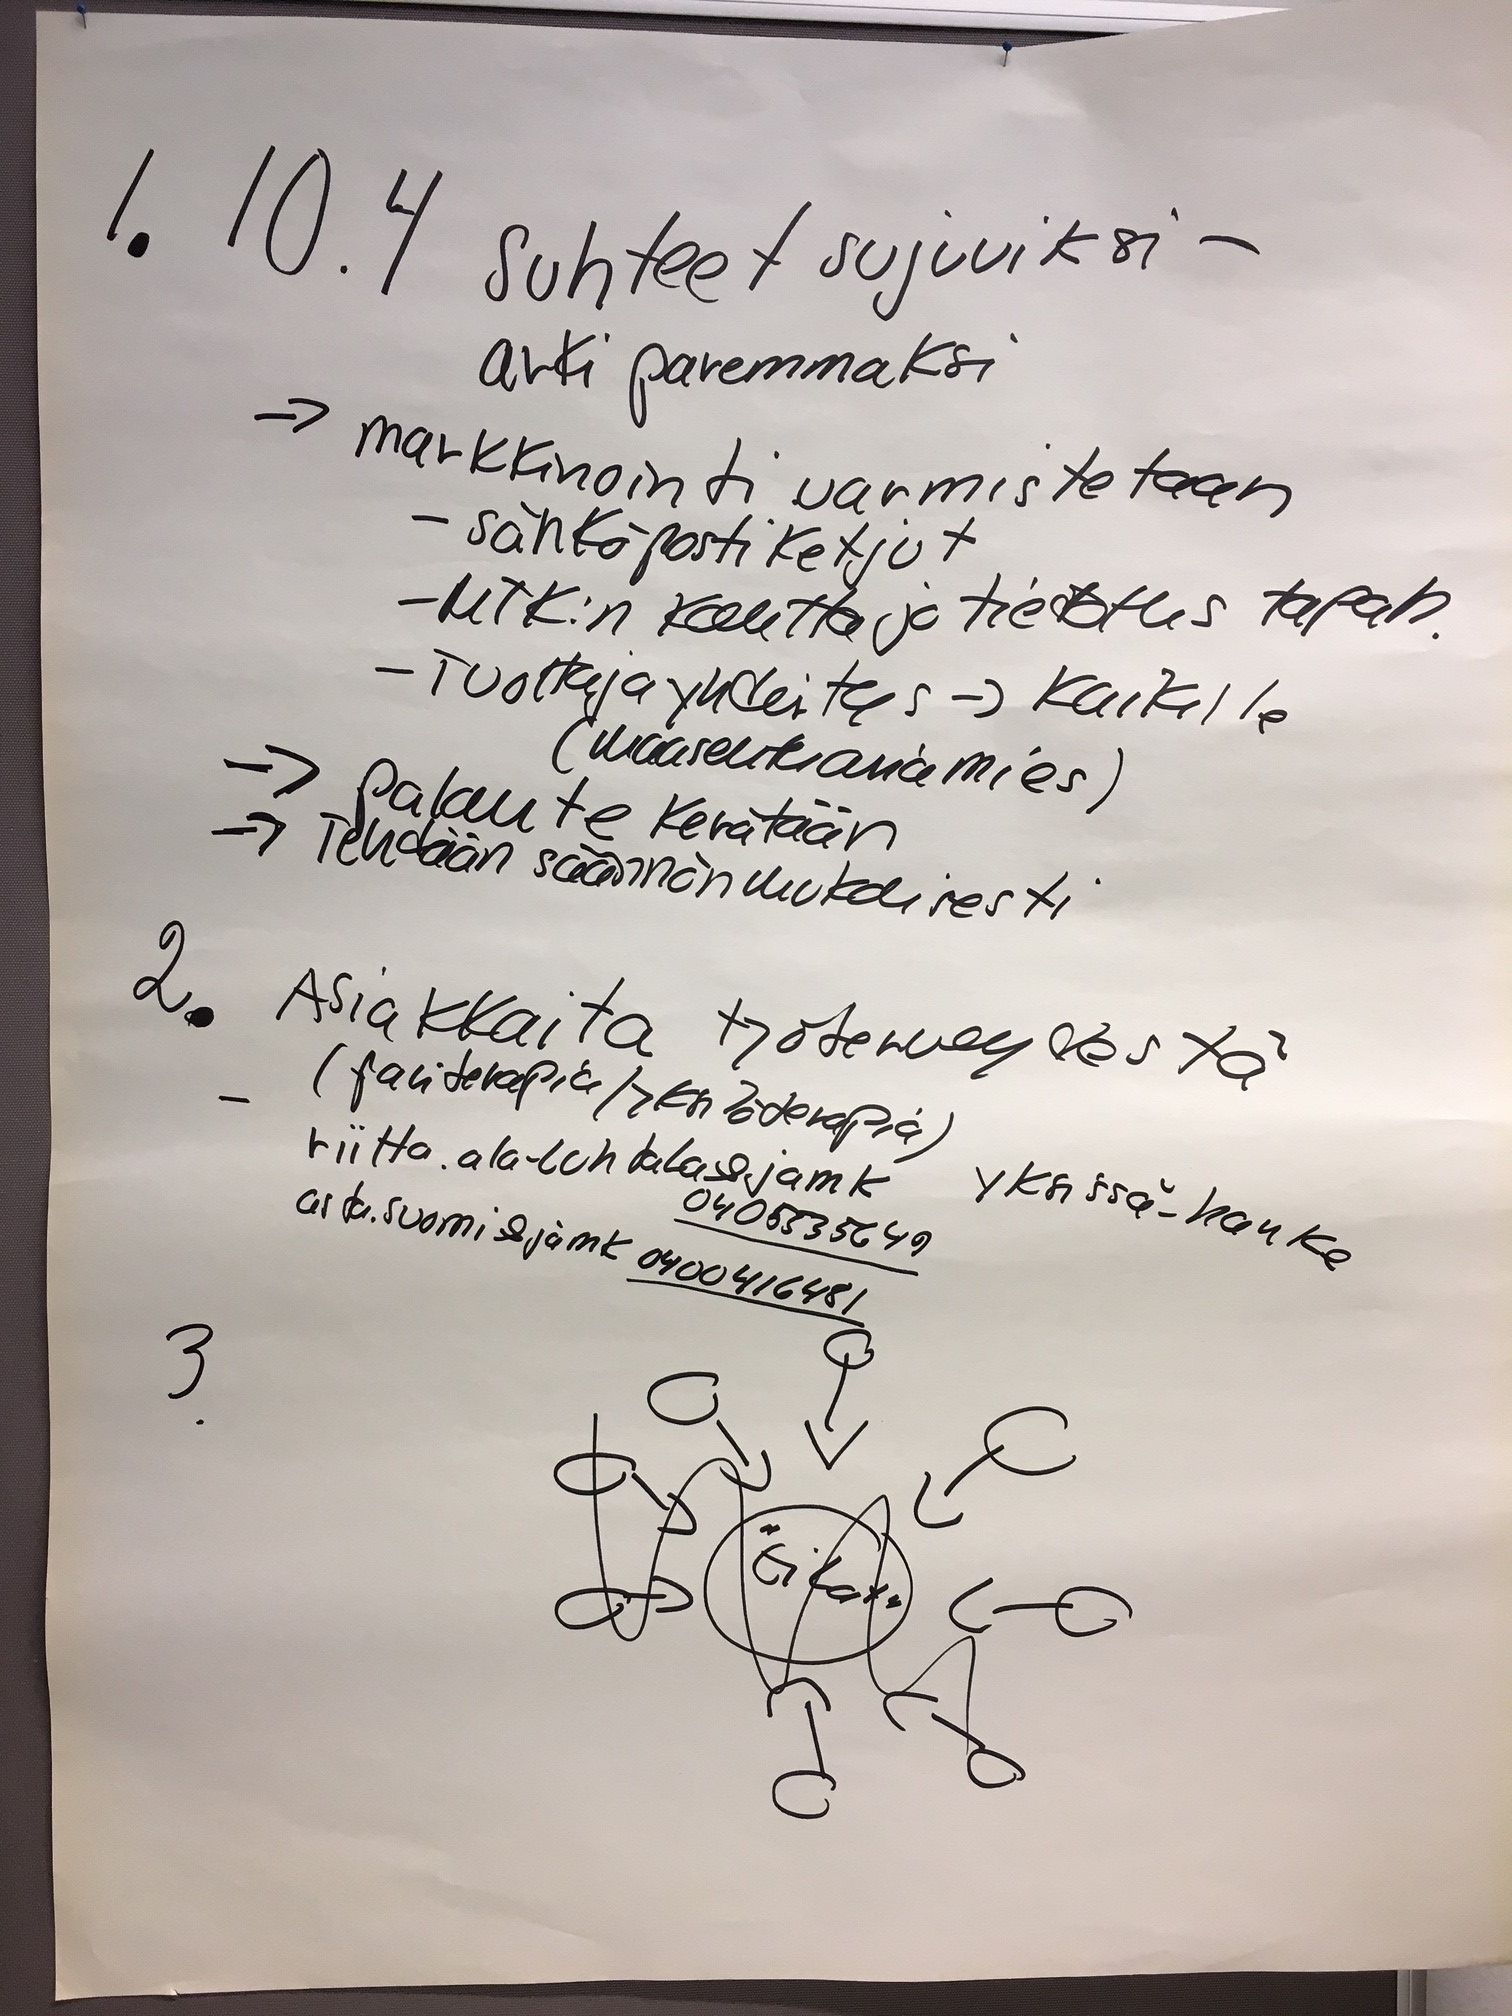 1. 10.4 Suhteet sujuviksi -
arki paremmaksi
-> markkinointi varmistetaan
- sähköpostiketjut
- MTK:n kautta jo tiedotus tapah.
- Tuottajayhdistys -> kaikille
(Maaseutuanamies)
-> palaute kerätään
-> Tehdään säännönmukaisesti
2. Asiakkaita työterveydestä
(pariterapia/yksilöterapia)
- riitta.ala-luhtala@jamk yksissä-hanke
0405535649
asta.suomi@jamk 0400416481
3.